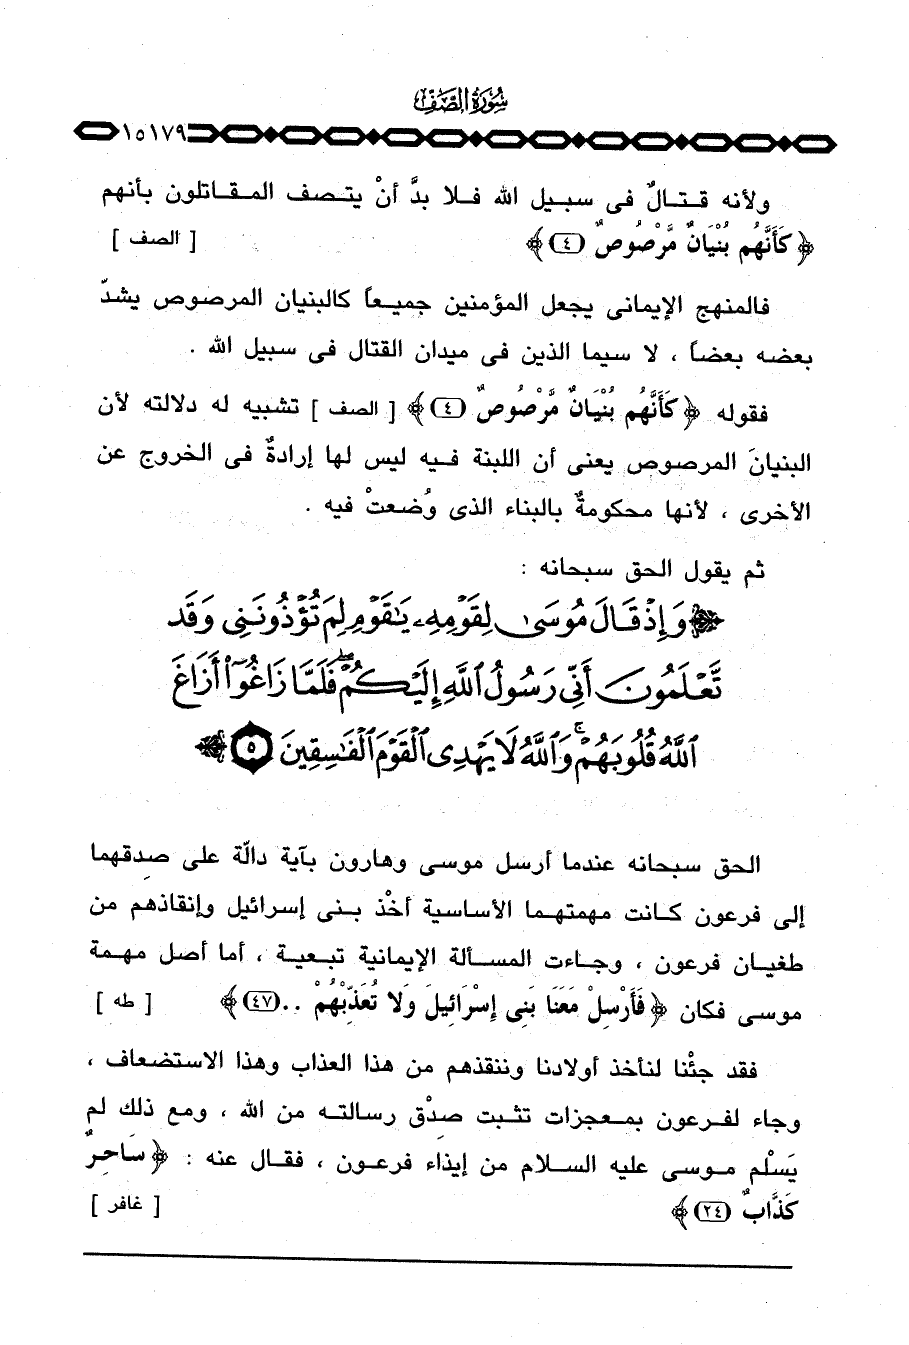 سُورَةُ الصَّفِّ
١٥١٧٩
ولأنه قتالٌ فى سبيل الله فلا بدَّ أنْ يتصف المقاتلون بأنهم
﴿ كَأَنَّهُم بُنْيَانٌ مَّرْصُوصٌ (٤) ﴾ [ الصف ]
فالمنهج الإيمانى يجعل المؤمنين جميعاً كالبنيان المرصوص يشدّ
بعضه بعضاً ، لا سيما الذين فى ميدان القتال فى سبيل الله .
فقوله ﴿ كَأَنَّهُم بُنْيَانٌ مَّرْصُوصٌ (٤) ﴾ [ الصف ] تشبيه له دلالته لأن
البنيانَ المرصوص يعنى أن اللبنة فيه ليس لها إرادةٌ فى الخروج عن
الأخرى ، لأنها محكومةٌ بالبناء الذى وُضعتْ فيه .
ثم يقول الحق سبحانه :
﴿ وَإِذْ قَالَ مُوسَىٰ لِقَوْمِهِۦ يَٰقَوْمِ لِمَ تُؤْذُونَنِى وَقَد
تَّعْلَمُونَ أَنِّى رَسُولُ ٱللَّهِ إِلَيْكُمْۖ فَلَمَّا زَاغُوٓا۟ أَزَاغَ
ٱللَّهُ قُلُوبَهُمْۚ وَٱللَّهُ لَا يَهْدِى ٱلْقَوْمَ ٱلْفَٰسِقِينَ ٥ ﴾
الحق سبحانه عندما أرسل موسى وهارون بآية دالّة على صِدقهما
إلى فرعون كانت مهمتهما الأساسية أخْذ بنى إسرائيل وإنقاذهم من
طغيان فرعون ، وجاءت المسألة الإيمانية تبعية ، أما أصل مهمة
موسى فكان ﴿ فَأَرْسِلْ مَعَنَا بَنِى إِسْرَائِيلَ وَلَا تُعَذِّبْهُمْ .. (٤٧) ﴾ [ طه ]
فقد جئْنا لنأخذ أولادنا وننقذهم من هذا العذاب وهذا الاستضعاف ،
وجاء لفرعون بمعجزات تثبت صِدْق رسالته من الله ، ومع ذلك لم
يَسْلم موسى عليه السلام من إيذاء فرعون ، فقال عنه : ﴿ سَاحِرٌ
كَذَّابٌ (٢٤) ﴾ [ غافر ]